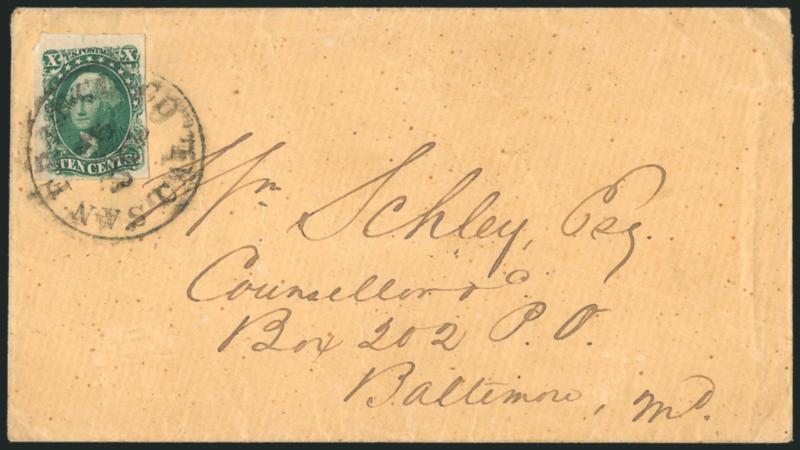 X U.S. POSTAGE X
TEN CENTS
SAN FRANCISCO CAL.
Wm Schley, Esq.
Counsellor &c
Box 202 P.O.
Baltimore, Md.